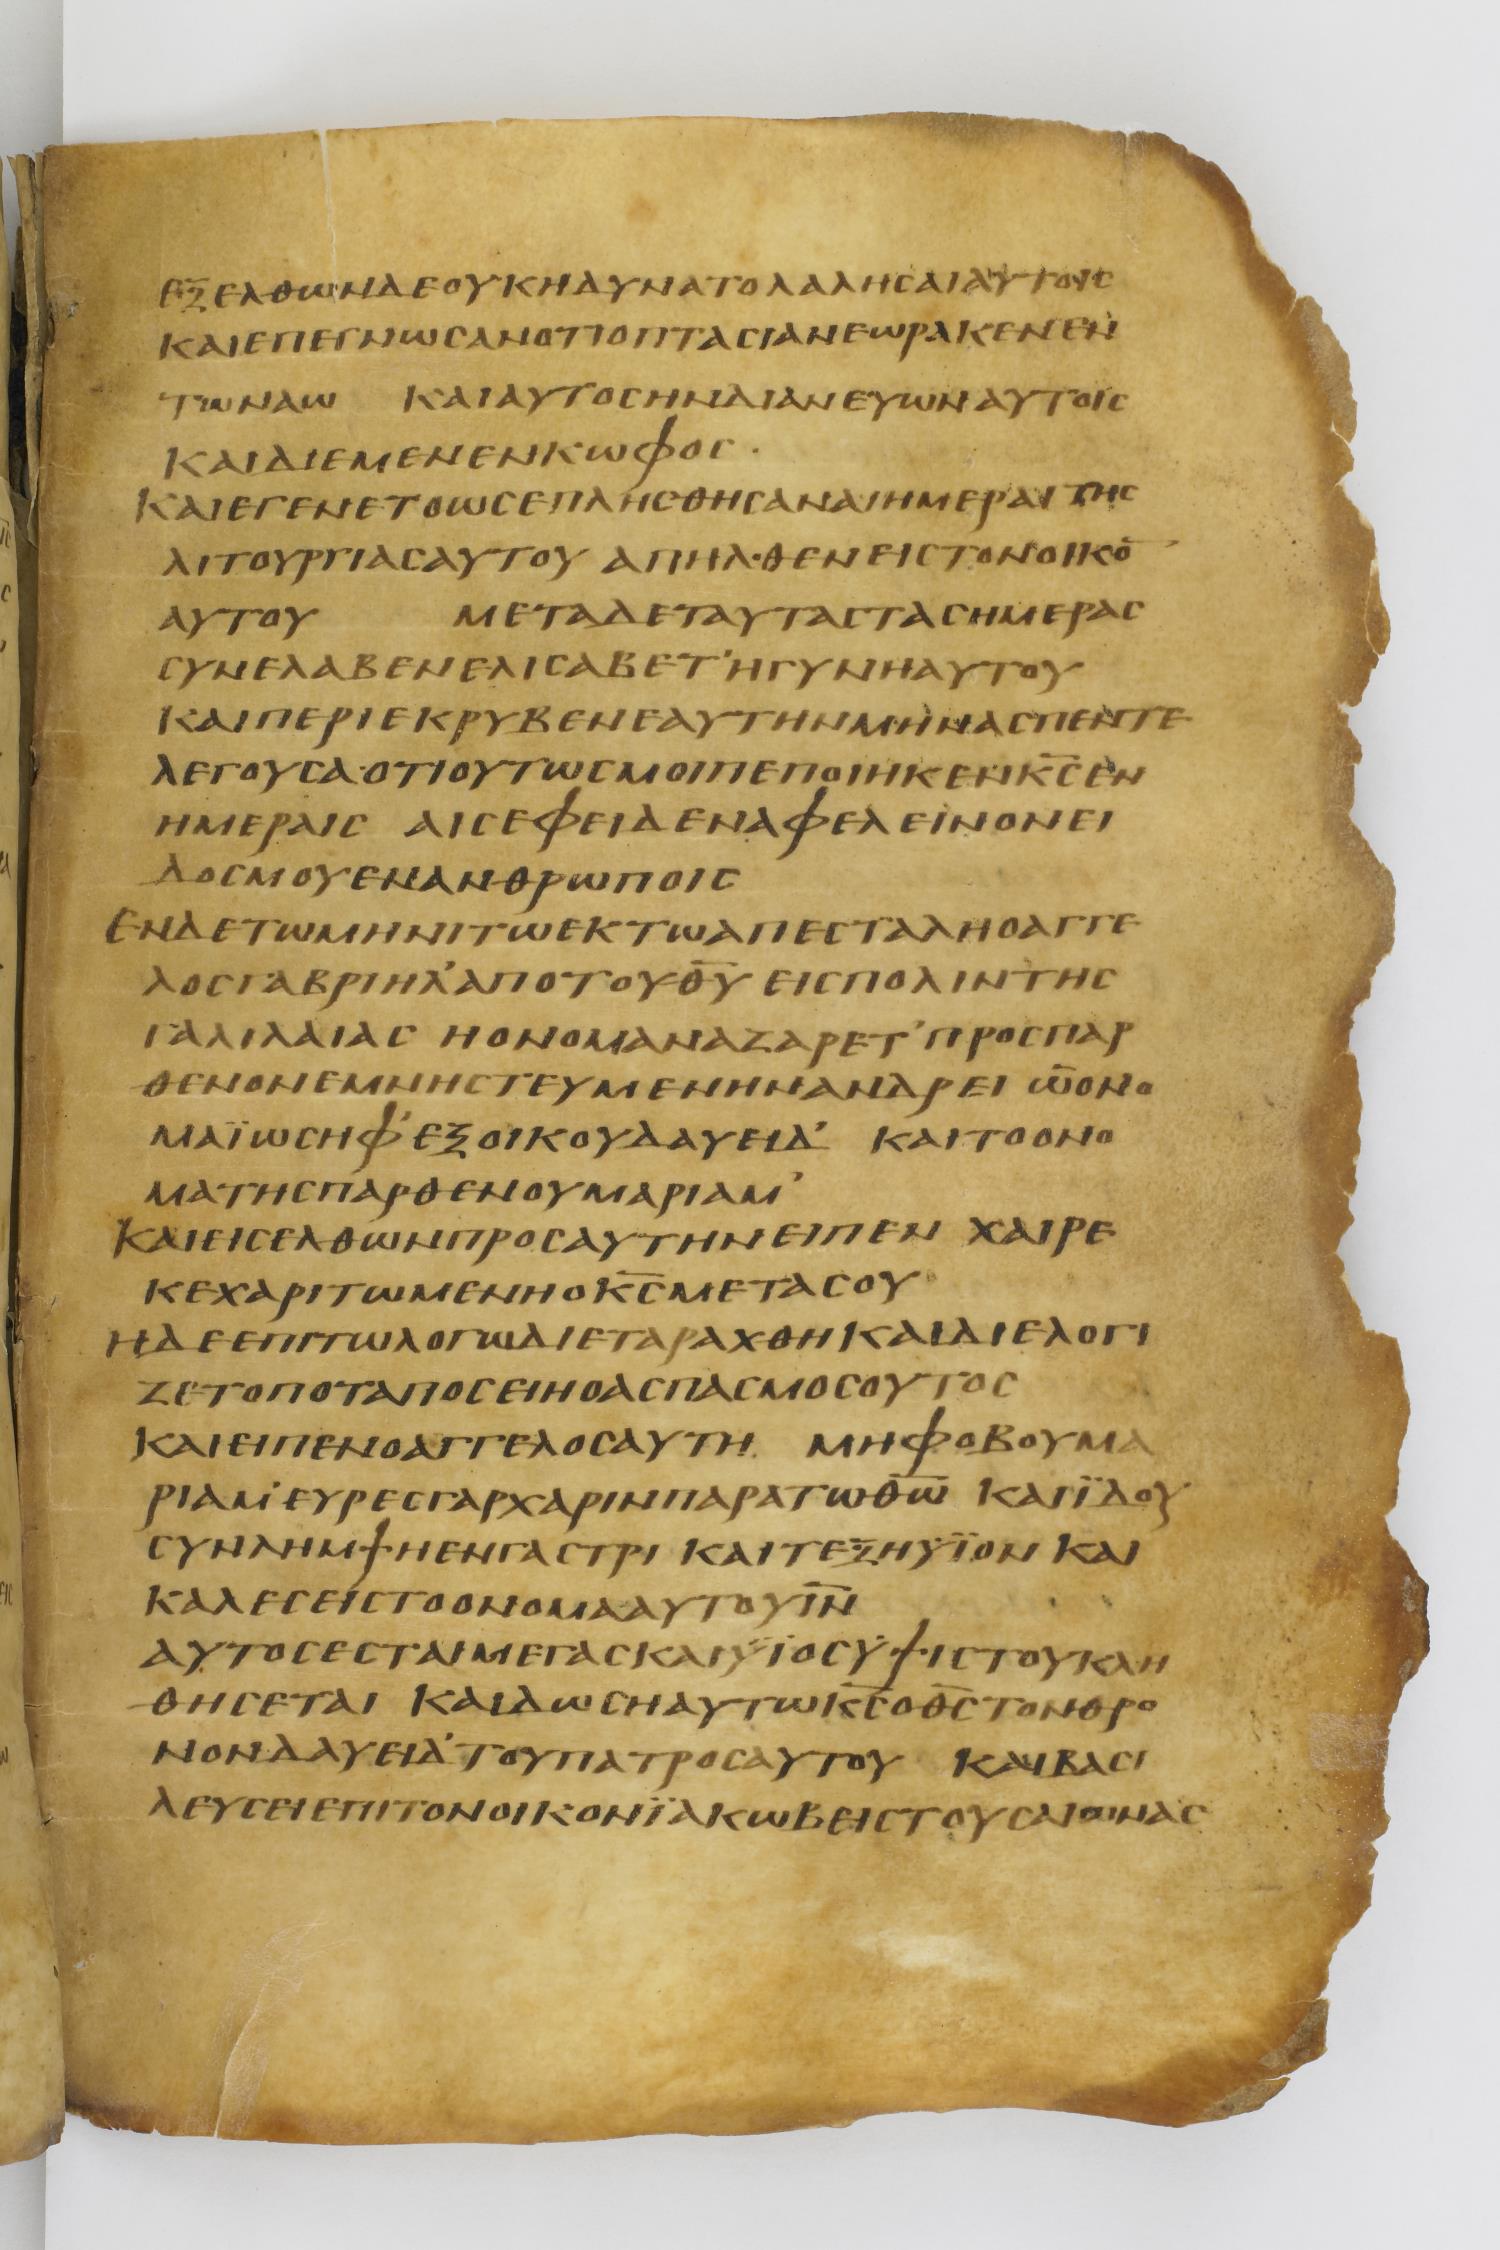 ΕΞΕΛΘΩΝΔΕΟΥΚΗΔΥΝΑΤΟΛΑΛΗΣΑΙΑΥΤΟΙΣ
ΚΑΙΕΠΕΓΝΩΣΑΝΟΤΙΟΠΤΑΣΙΑΝΕΩΡΑΚΕΝΕΝ
ΤΩΝΑΩ ΚΑΙΑΥΤΟΣΗΝΔΙΑΝΕΥΩΝΑΥΤΟΙΣ
ΚΑΙΔΙΕΜΕΝΕΝΚΩΦΟΣ·
ΚΑΙΕΓΕΝΕΤΟΩΣΕΠΛΗΣΘΗΣΑΝΑΙΗΜΕΡΑΙΤΗΣ
ΛΙΤΟΥΡΓΙΑΣΑΥΤΟΥ ΑΠΗΛ·ΘΕΝΕΙΣΤΟΝΟΙΚΟ̅
ΑΥΤΟΥ ΜΕΤΑΔΕΤΑΥΤΑΣΤΑΣΗΜΕΡΑΣ
ΣΥΝΕΛΑΒΕΝΕΛΙΣΑΒΕΤ᾿ΗΓΥΝΗΑΥΤΟΥ
ΚΑΙΠΕΡΙΕΚΡΥΒΕΝΕΑΥΤΗΝΜΗΝΑΣΠΕΝΤΕ
ΛΕΓΟΥΣΑ·ΟΤΙΟΥΤΩΣΜΟΙΠΕΠΟΙΗΚΕΝΚ̅Σ̅ΕΝ
ΗΜΕΡΑΙΣ ΑΙΣΕΦΕΙΔΕΝΑΦΕΛΕΙΝΟΝΕΙ
ΔΟΣΜΟΥΕΝΑΝΘΡΩΠΟΙΣ
ΕΝΔΕΤΩΜΗΝΙΤΩΕΚΤΩΑΠΕΣΤΑΛΗΟΑΓΓΕ
ΛΟΣΓΑΒΡΙΗΛ᾿ΑΠΟΤΟΥΘ̅Υ̅ ΕΙΣΠΟΛΙΝΤΗΣ
ΓΑΛΙΛΑΙΑΣ ΗΟΝΟΜΑΝΑΖΑΡΕΤ᾿ΠΡΟΣΠΑΡ
ΘΕΝΟΝΕΜΝΗΣΤΕΥΜΕΝΗΝΑΝΔΡΕΙ Ω̅ΟΝΟ
ΜΑΪΩΣΗΦ᾿ΕΞΟΙΚΟΥΔΑΥΕΙΔ᾿ ΚΑΙΤΟΟΝΟ
ΜΑΤΗΣΠΑΡΘΕΝΟΥΜΑΡΙΑΜ᾿
ΚΑΙΕΙΣΕΛΘΩΝΠΡΟΣΑΥΤΗΝΕΙΠΕΝ ΧΑΙΡΕ
ΚΕΧΑΡΙΤΩΜΕΝΗΟΚ̅Σ̅ΜΕΤΑΣΟΥ
ΗΔΕΕΠΙΤΩΛΟΓΩΔΙΕΤΑΡΑΧΘΗΚΑΙΔΙΕΛΟΓΙ
ΖΕΤΟΠΟΤΑΠΟΣΕΙΗΟΑΣΠΑΣΜΟΣΟΥΤΟΣ
ΚΑΙΕΙΠΕΝΟΑΓΓΕΛΟΣΑΥΤΗ ΜΗΦΟΒΟΥΜΑ
ΡΙΑΜ᾿ΕΥΡΕΣΓΑΡΧΑΡΙΝΠΑΡΑΤΩΘ̅Ω̅ ΚΑΙΪΔΟΥ
ΣΥΝΛΗΜΨΗΕΝΓΑΣΤΡΙ ΚΑΙΤΕΞΗΫΪΟΝ ΚΑΙ
ΚΑΛΕΣΕΙΣΤΟΟΝΟΜΑΑΥΤΟΥΙ̅Ν̅
ΑΥΤΟΣΕΣΤΑΙΜΕΓΑΣΚΑΙΫΪΟΣΫΨΙΣΤΟΥΚΛΗ
ΘΗΣΕΤΑΙ ΚΑΙΔΩΣΗΑΥΤΩΚ̅Σ̅ΟΘ̅Σ̅ΤΟΝΘΡΟ
ΝΟΝΔΑΥΕΙΔ᾿ΤΟΥΠΑΤΡΟΣΑΥΤΟΥ ΚΑΙΒΑΣΙ
ΛΕΥΣΕΙΕΠΙΤΟΝΟΙΚΟΝΪΑΚΩΒΕΙΣΤΟΥΣΑΙΩΝΑΣ